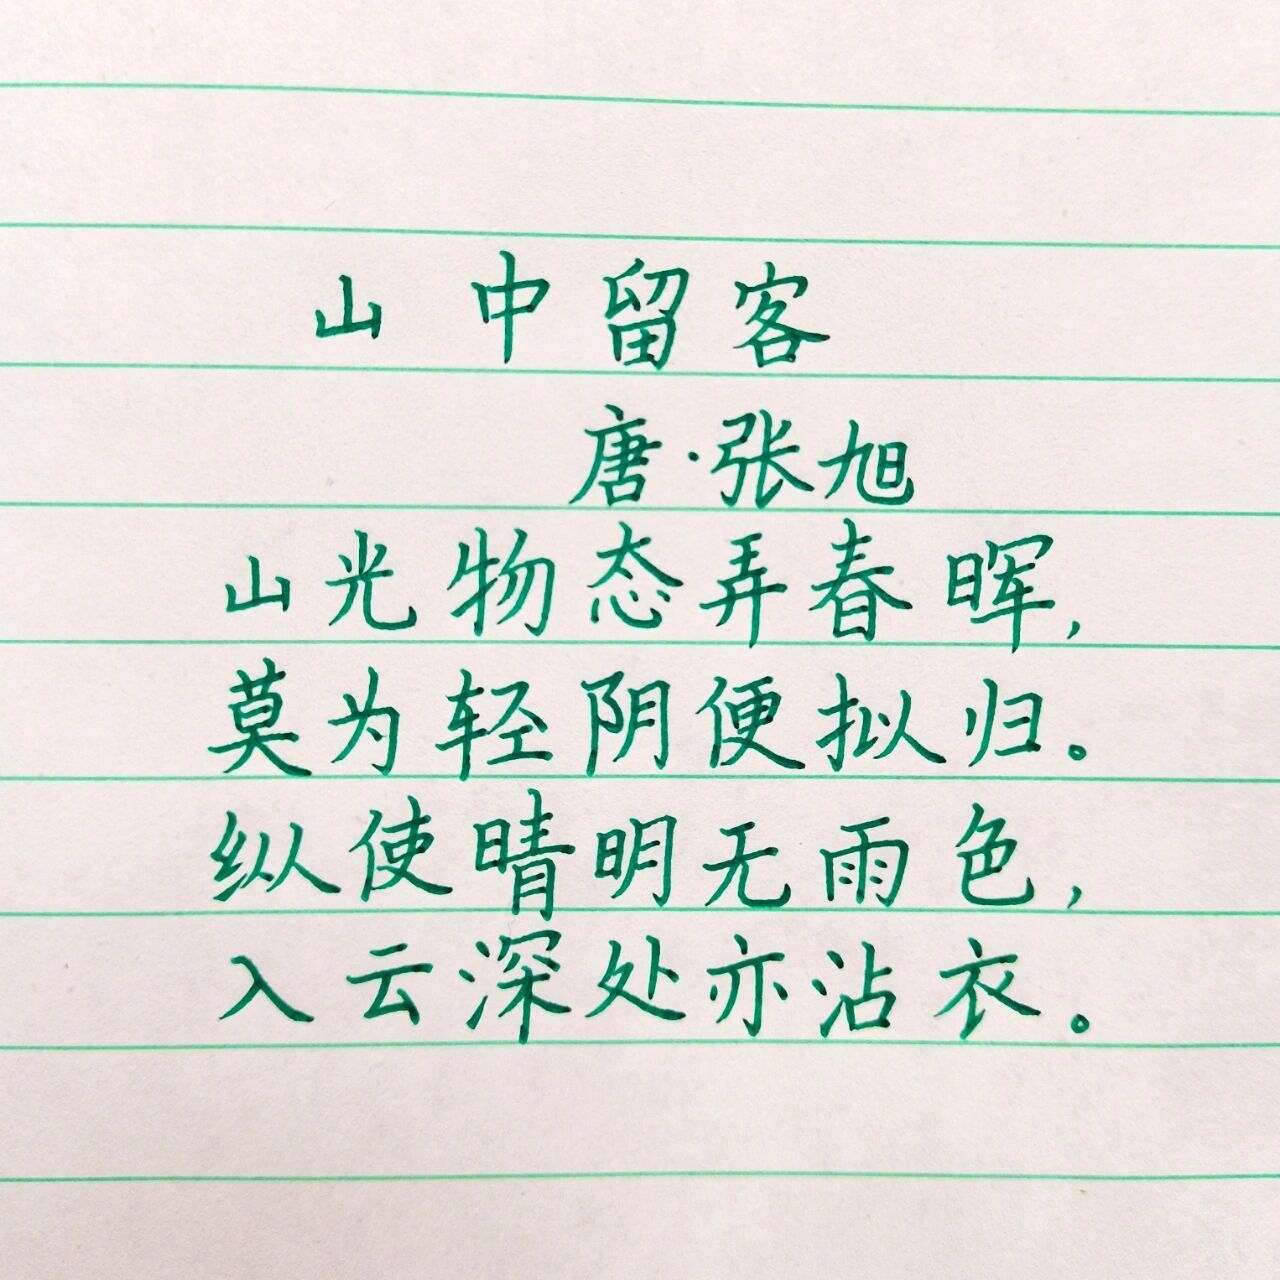 山中留客
唐·张旭
山光物态弄春晖,
莫为轻阴便拟归。
纵使晴明无雨色,
入云深处亦沾衣。